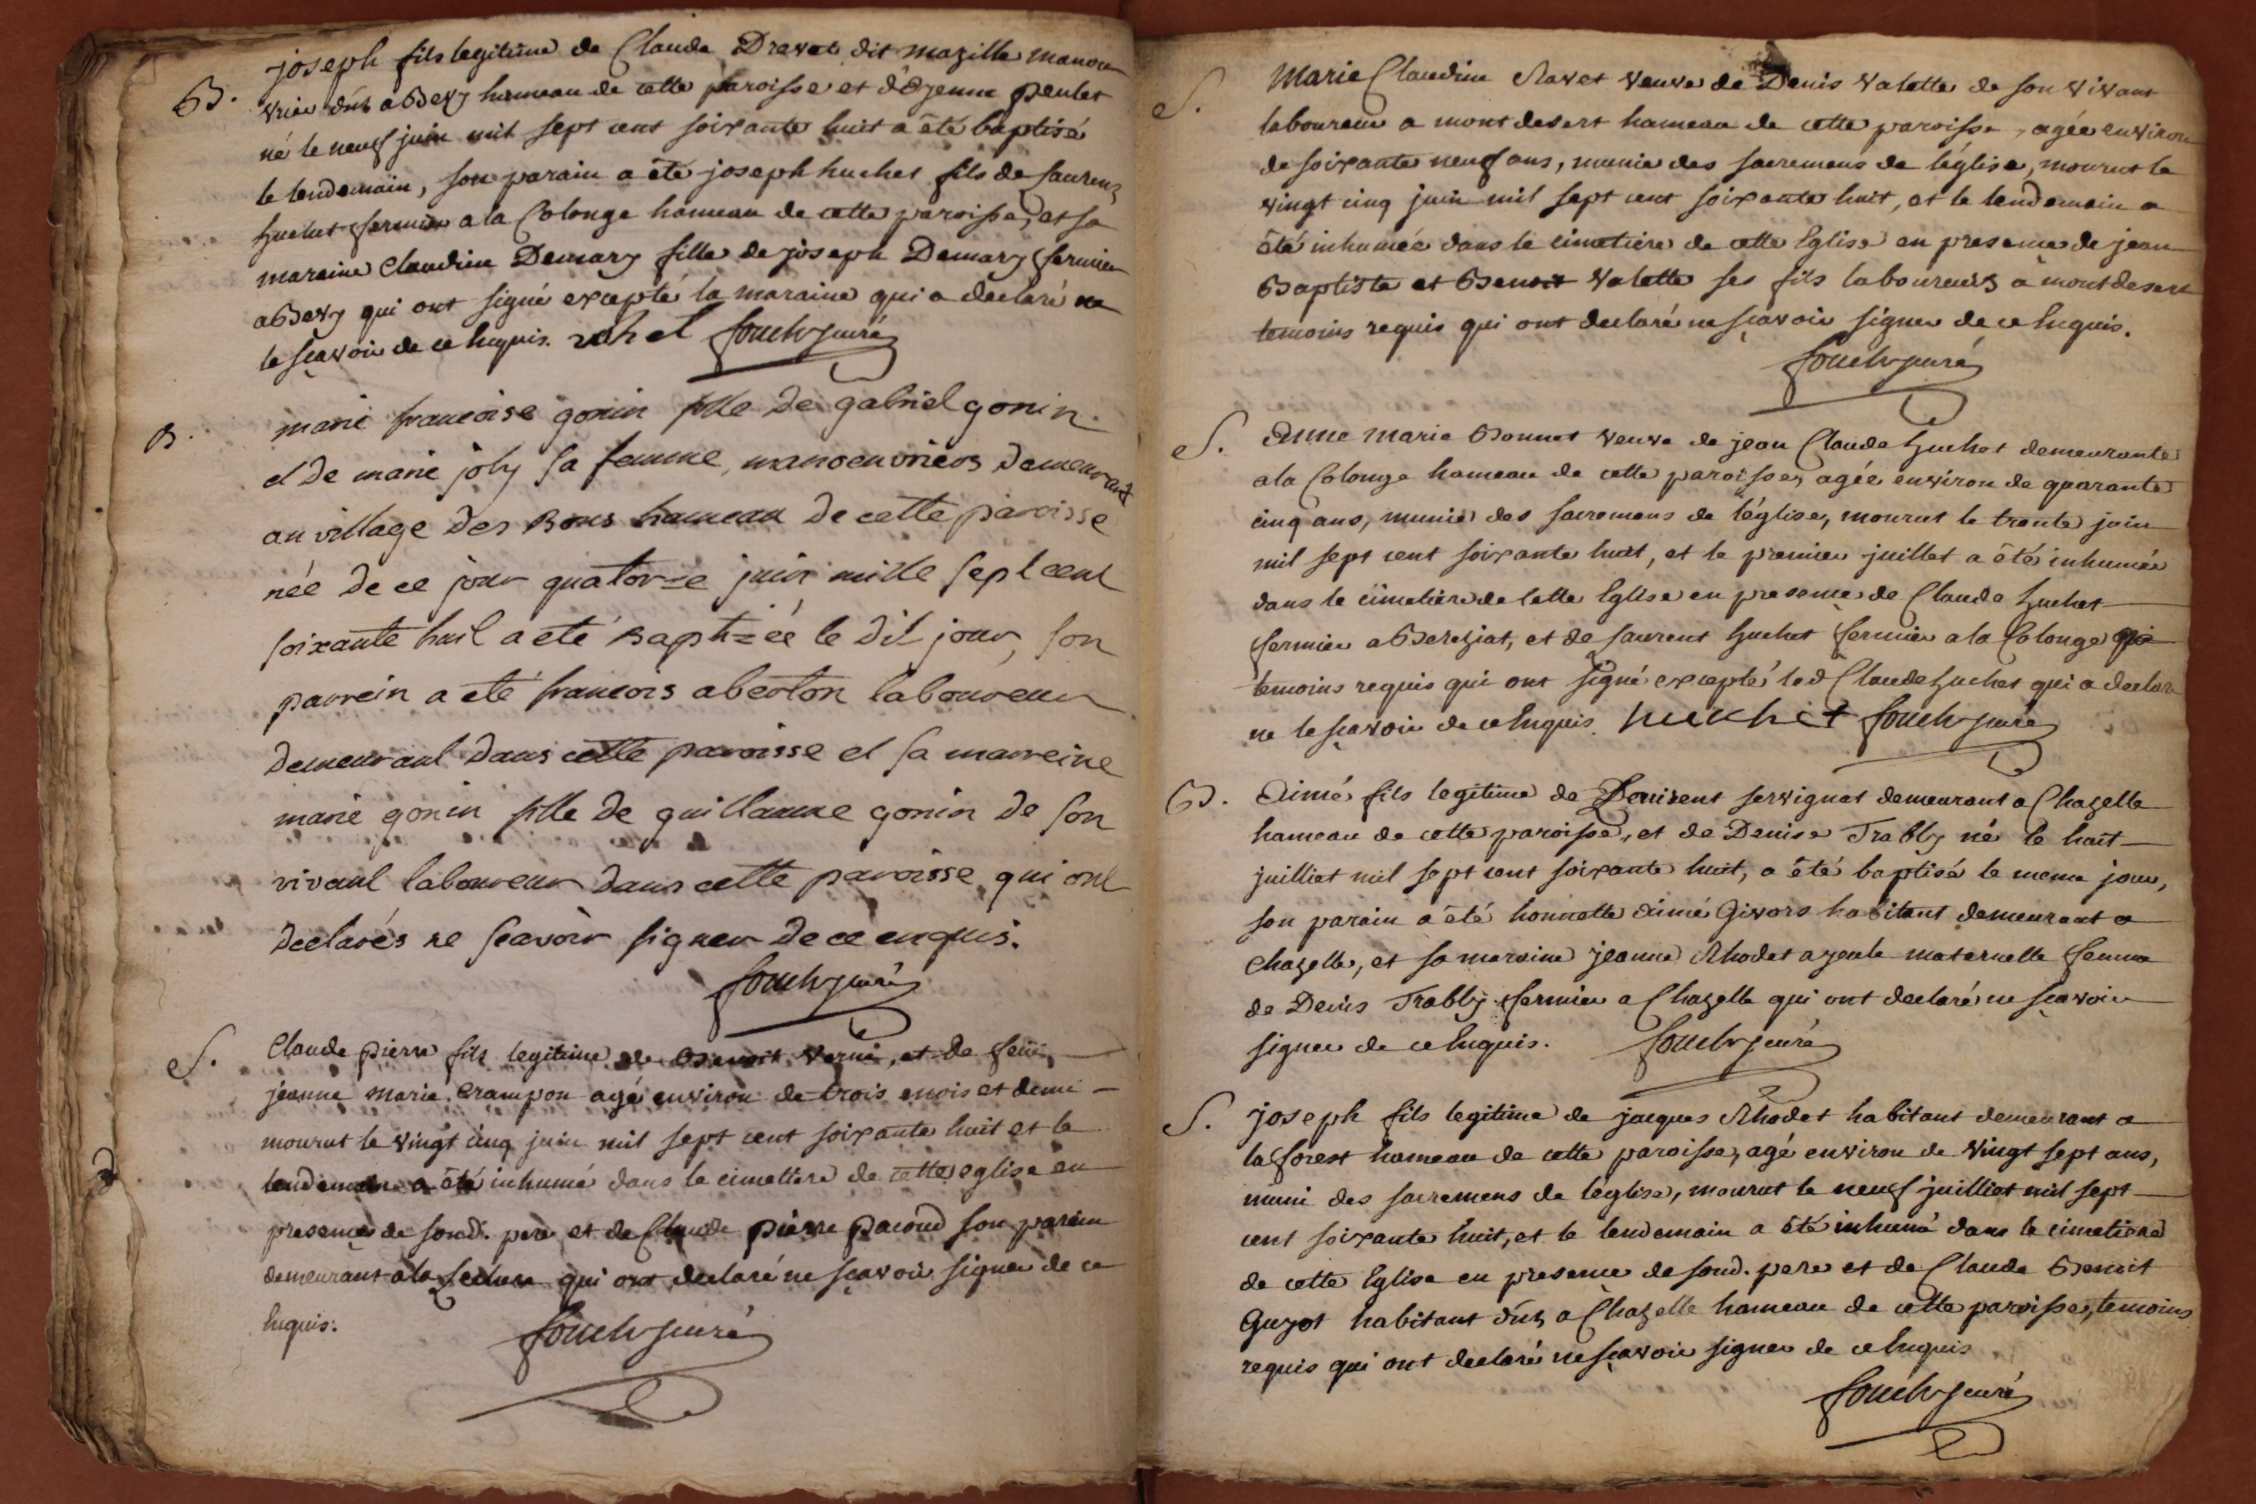 B. joseph fils legitime de Claude Dravet dit mazille manou
vrier dûs a Bevy hameau de cette paroisse et d'Eyenne peulet
né le neuf juin mil sept cent soixante huit a êté baptisé
le lendemain, son parain a êté joseph huchet fils de Laurens
huchet fermier a la Colonge hameau de cette paroisse, et sa
maraine Claudine Demary fille de joseph Demary fermier
a Bevy qui ont signé excepté la maraine qui a declaré ne
le sçavoir de ce Enquis. fouch curé
B. marie francoise gonin fille de gabriel gonin
et de marie joly sa femme, manoeuvriers demeurant
au village des Bons hameau de cette paroisse
née de ce jour quatorze juin mille sept cent
soixante huit a eté Baptizée le dit jour, son
parrein a eté francois aberton laboureur
demeurant dans cette paroisse et sa marreine
marie gonin fille de guillaume gonin de son
vivant laboureur dans cette paroisse qui ont
declarés ne scavoir signer de ce enquis.
fouch curé
S. Claude pierre fils legitime de Benoit Verne, et de feüe
jeanne Marie Crampon agé environ de trois mois et demi
mourut le vingt cinq juin mil sept cent soixante huit et le
lendemain a êté inhumé dans le cimetiere de cette eglise en
presence de sond. pere et de Claude pierre pacoud son parain
demeurant a la qui ont declaré ne sçavoir signer de ce
Enquis.
fouch curé
S. Marie Claudine Ravet veuve de Denis Valette de son vivant
laboureur a mont desert hameau de cette paroisse, agée environ
de soixante neuf ans, munie des sacremens de l'église, mourut le
vingt cinq juin mil sept cent soixante huit, et le lendemain a
êté inhumée dans le cimetiere de cette Eglise en presence de jean
Baptiste et Benoit Valette ses fils laboureurs a mont desert
temoins requis qui ont declaré ne sçavoir signer de ce Enquis.
fouch curé
S. Anne Marie Bonnet veuve de jean Claude huchet demeurante
a la Colonge hameau de cette paroisse, agée environ de quarante
cinq ans, munie des sacremens de l'église, mourut le trente juin
mil sept cent soixante huit, et le premier juillet a êté inhumée
dans le cimetiere de cette Eglise en presence de Claude huchet
fermier a Bereziat, et de Laurent huchet fermier a la Colonge qui
temoins requis qui ont signé excepté led Claude huchet qui a declaré
ne le sçavoir de ce Enquis. hukhet fouch curé
B. Aimé fils legitime de servignat demeurant a Chazelle
hameau de cette paroisse, et de Denise Trably né le huit
juilliet mil sept cent soixante huit, a êté baptisé le meme jour,
son parain a êté honnette Aimé Givors habitant demeurant a
Chazelle, et sa maraine jeanne Rhodet ayeule maternelle femme
de Denis Trably fermier a Chazelle qui ont declaré ne sçavoir
signer de ce Enquis. fouch curé
S. joseph fils legitime de jacques Rhodet habitant demeurant a
la forest hameau de cette paroisse, agé environ de vingt sept ans,
muni des sacremens de l'église, mourut le neuf juilliet mil sept
cent soixante huit, et le lendemain a êté inhumé dans le cimetiere
de cette Eglise en presence de sond. pere et de Claude Benoit
Guyot habitant dûs a Chazelle hameau de cette paroisse, temoins
requis qui ont declaré ne sçavoir signer de ce Enquis
fouch curé